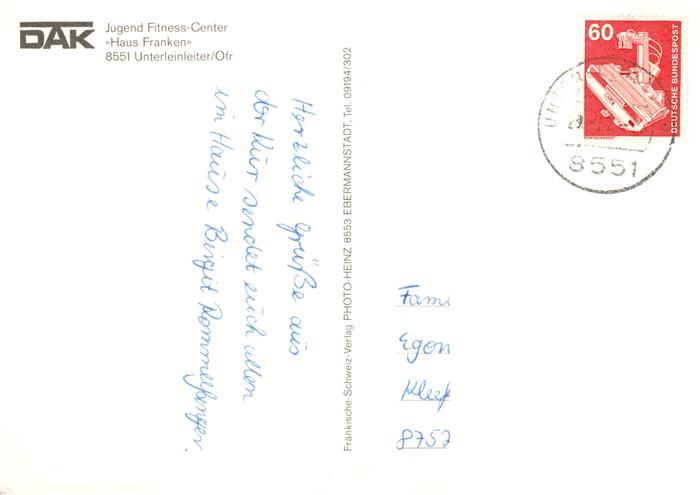 DAK
Jugend Fitness-Center
»Haus Franken«
8551 Unterleinleiter/Ofr
60
DEUTSCHE BUNDESPOST
RÖNTGENGERÄT
8551
Herzliche Grüße aus
der Kur sendet euch allen
im Hause Birgit
Fränkische-Schweiz-Verlag PHOTO-HEINZ 8553 EBERMANNSTADT, Tel. 09194/302
Fami
Egon
Kleef
8752